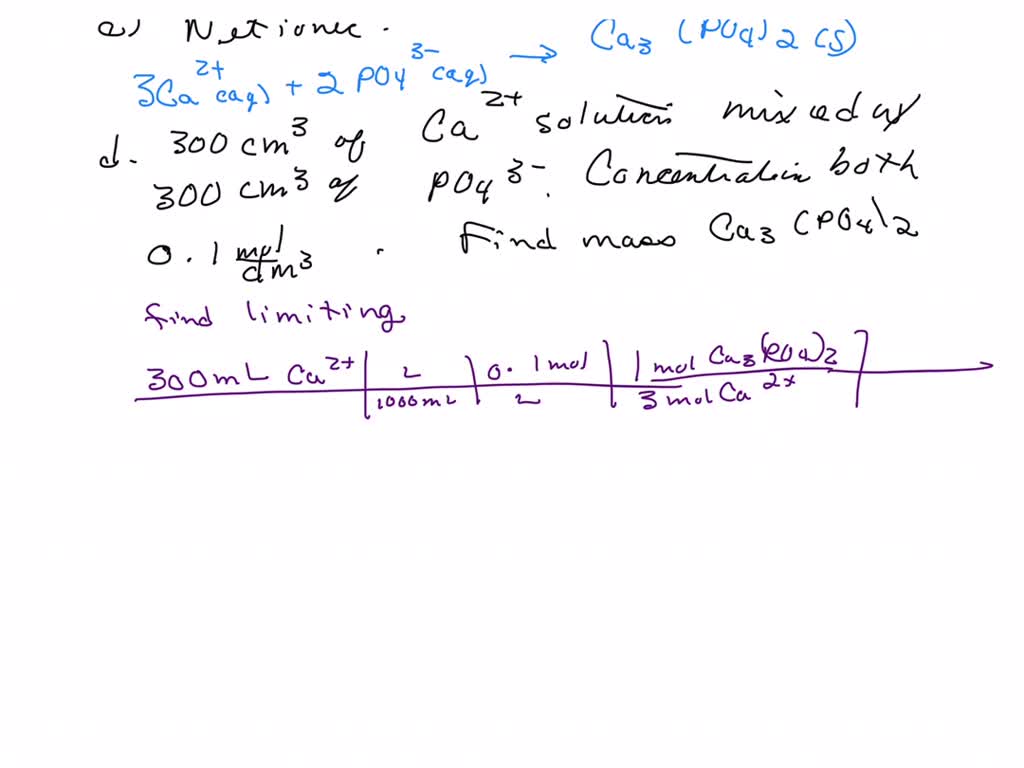 e) Net ionic.
3Ca²⁺(aq) + 2 PO4³⁻(aq) → Ca3 (PO4)2 (s)
d. 300 cm³ of Ca²⁺ solution mixed w/
300 cm³ of PO4³⁻. Concentration both
0.1 mol/dm³. Find mass Ca3 (PO4)2
find limiting
300mL Ca²⁺ | L | 0.1mol | 1 mol Ca3(PO4)2
1000mL | L | 3 mol Ca²⁺